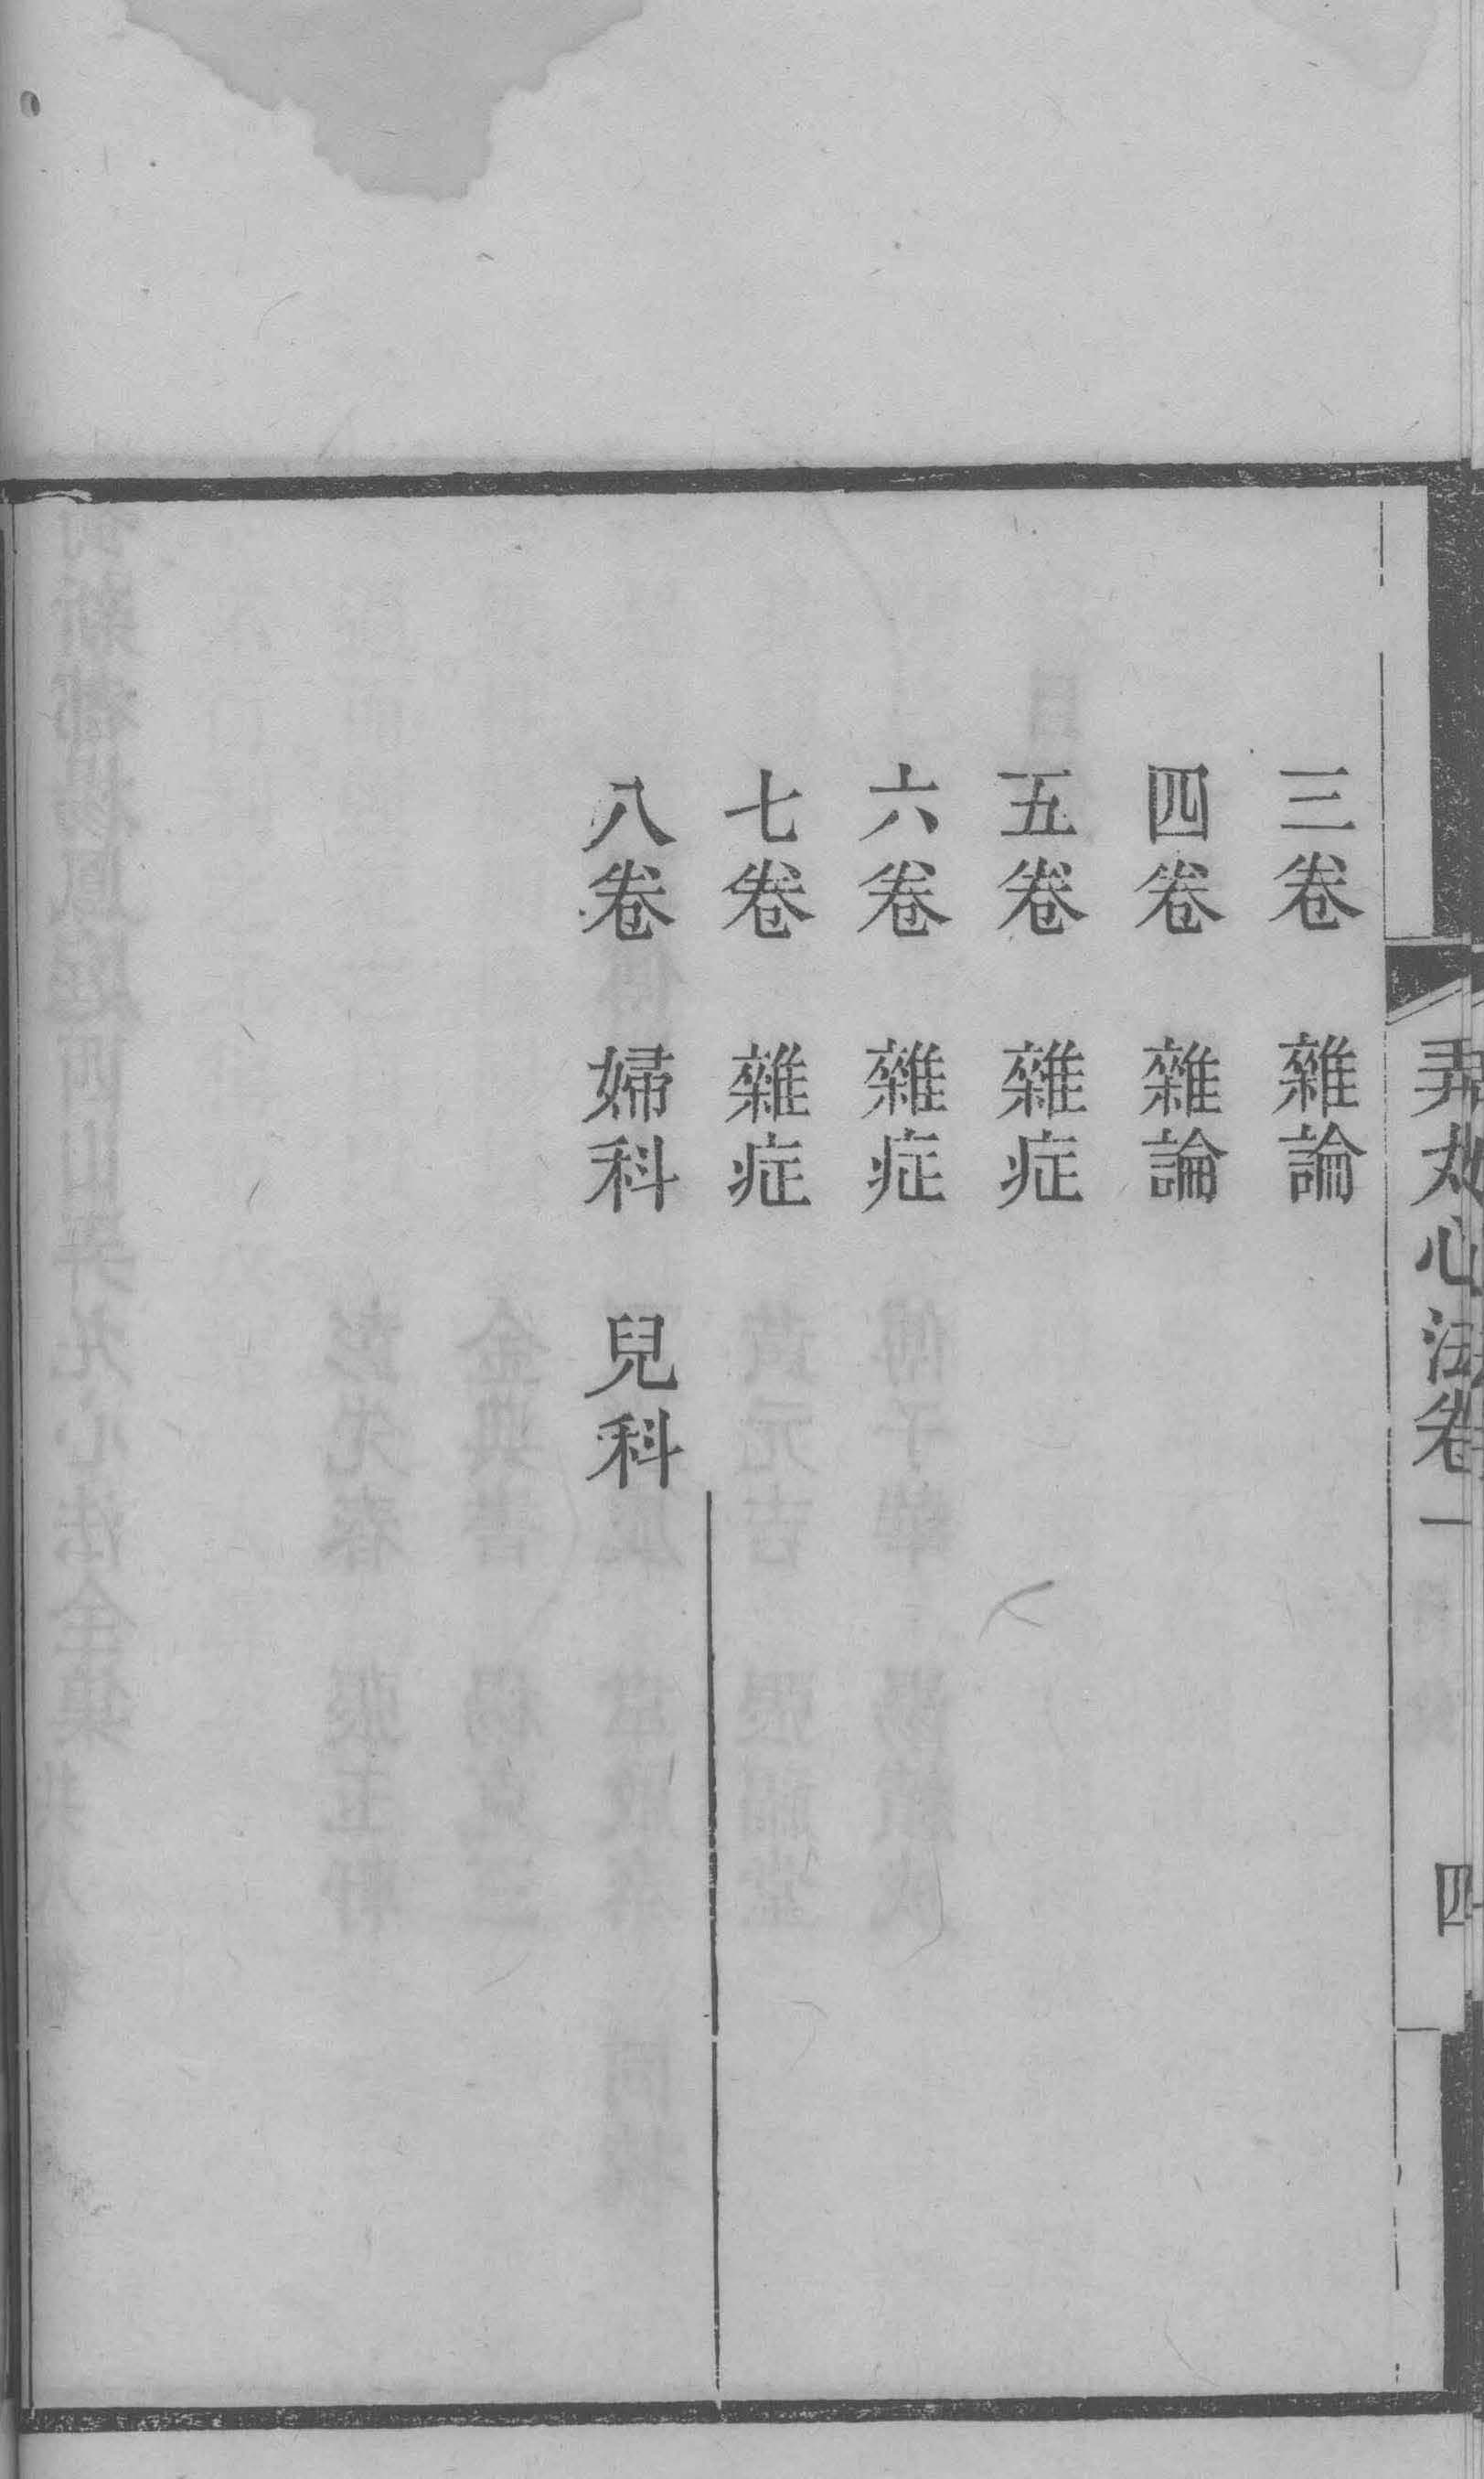 弄丸心法卷一
四
三卷　雜論
四卷　雜論
五卷　雜症
六卷　雜症
七卷　雜症
八卷　婦科　兒科